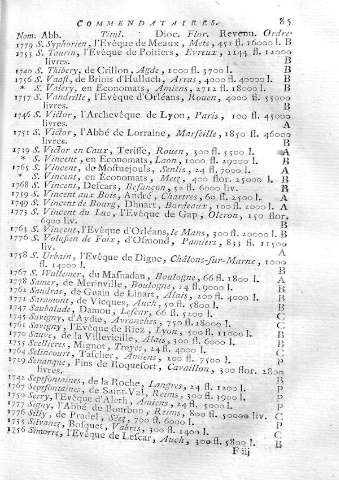 COMMENDATAIRES. 85
Nom. Abb. Titul. Dioc. Flor. Revenu. Ordre.
1779 S. Syphorien, l'Evêque de Meaux, Metz, 451 fl. 16000 l. B
1753 S. Taurin, l'Evêque de Poitiers, Evreux, 1244 fl. 11000
livres. B
1740 S. Thibery, de Crillon, Agde, 1000 fl. 3700 l. B
1756 S. Vaast, de Briois d'Hulluch, Arras, 4000 fl. 40000 l. B
* S. Valery, en Economats, Amiens, 2711 fl. 18000 l. B
1757 S. Vandrille, l'Evêque d'Orléans, Rouen, 4000 fl. 55000
livres. B
1746 S. Victor, l'Archevêque de Lyon, Paris, 100 fl. 45000
livres. A
1751 S. Victor, l'Abbé de Lorraine, Marseille, 1850 fl. 46000
livres. B
1739 S. Victor en Caux, Terisse, Rouen, 300 fl. 5500 l. A
* S. Vincent, en Economats, Laon, 1000 fl. 19000 l. B
1765 S. Vincent, de Senlis, 24 fl. 7000 l. A
* S. Vincent, en Economats, Metz, 400 flor. 25000 l. B
1768 S. Vincent, Defcars, Besançon, 50 fl. 6000 liv. B
1759 S. Vincent aux Bois, André, Chartres, 60 fl. 2500 l. A
1749 S. Vincent de Bourg, Dhuart, Bordeaux, 100 fl. 2000 l. A
1773 S. Vincent du Luc, l'Evêque de Gap, Oleron, 150 flor.
6900 liv. B
1763 S. Vincent, l'Evêque d'Orléans, le Mans, 300 fl. 20000 l. B
1776 S. Volusien de Foix, d'Osmond, Pamiers, 833 fl. 11500
liv. A
1758 S. Urbain, l'Evêque de Digne, Châlons-sur-Marne, 1000
fl. 14000 l. B
1767 S. Wullemer, du Masnadau, Boulogne, 66 fl. 1800 l. A
1778 Samer, de Merinville, Boulogne, 24 fl. 9000 l. B
1761 Sandras, de Guain de Linars, Alais, 200 fl. 4000 l. B
1771 Saramont, de Vicques, Auch, 50 fl. 5800 l. B
1747 Saubalade, Damou, Lescar, 66 fl. 5200
1745 Savigny, d'Aydie, Avranches, 750 fl. 18000 l. C
1761 Savigny, l'Evêque de Riez, Lyon, 500 fl. 11000 l. B
1770 Sauve, de la Villevieille, Alais, 300 fl. 6000 l. B
1755 Scellieres, Mignot, Troyes, 24 fl. 4000 l.
1764 Selincourt, Tascher, Amiens, 100 fl. 7500 l. P
1729 Sinanque, Pins de Roquefort, Cavaillon, 300 flor. 2800
livres.
1742 Septfontaines, de la Roche, Langres, 24 fl. 1200 l. P
1767 Septfontaines, de Saint-Val, Reims, 300 fl. 3900 l. P
1750 Serry, l'Evêque d'Aleth, Amiens, 24 fl. 5000 l. P
1777 Signy, l'Abbé de Bourbon, Reims, 800 fl. 50000 liv. C
1776 Silly, de Pradel, Séez, 700 fl. 6000 l. P
1735 Silvanez, Bosquet, Vabres, 300 fl. 1400 l. C
1756 Simorre, l'Evêque de Lescar, Auch, 300 fl. 5800 l. B
F iij